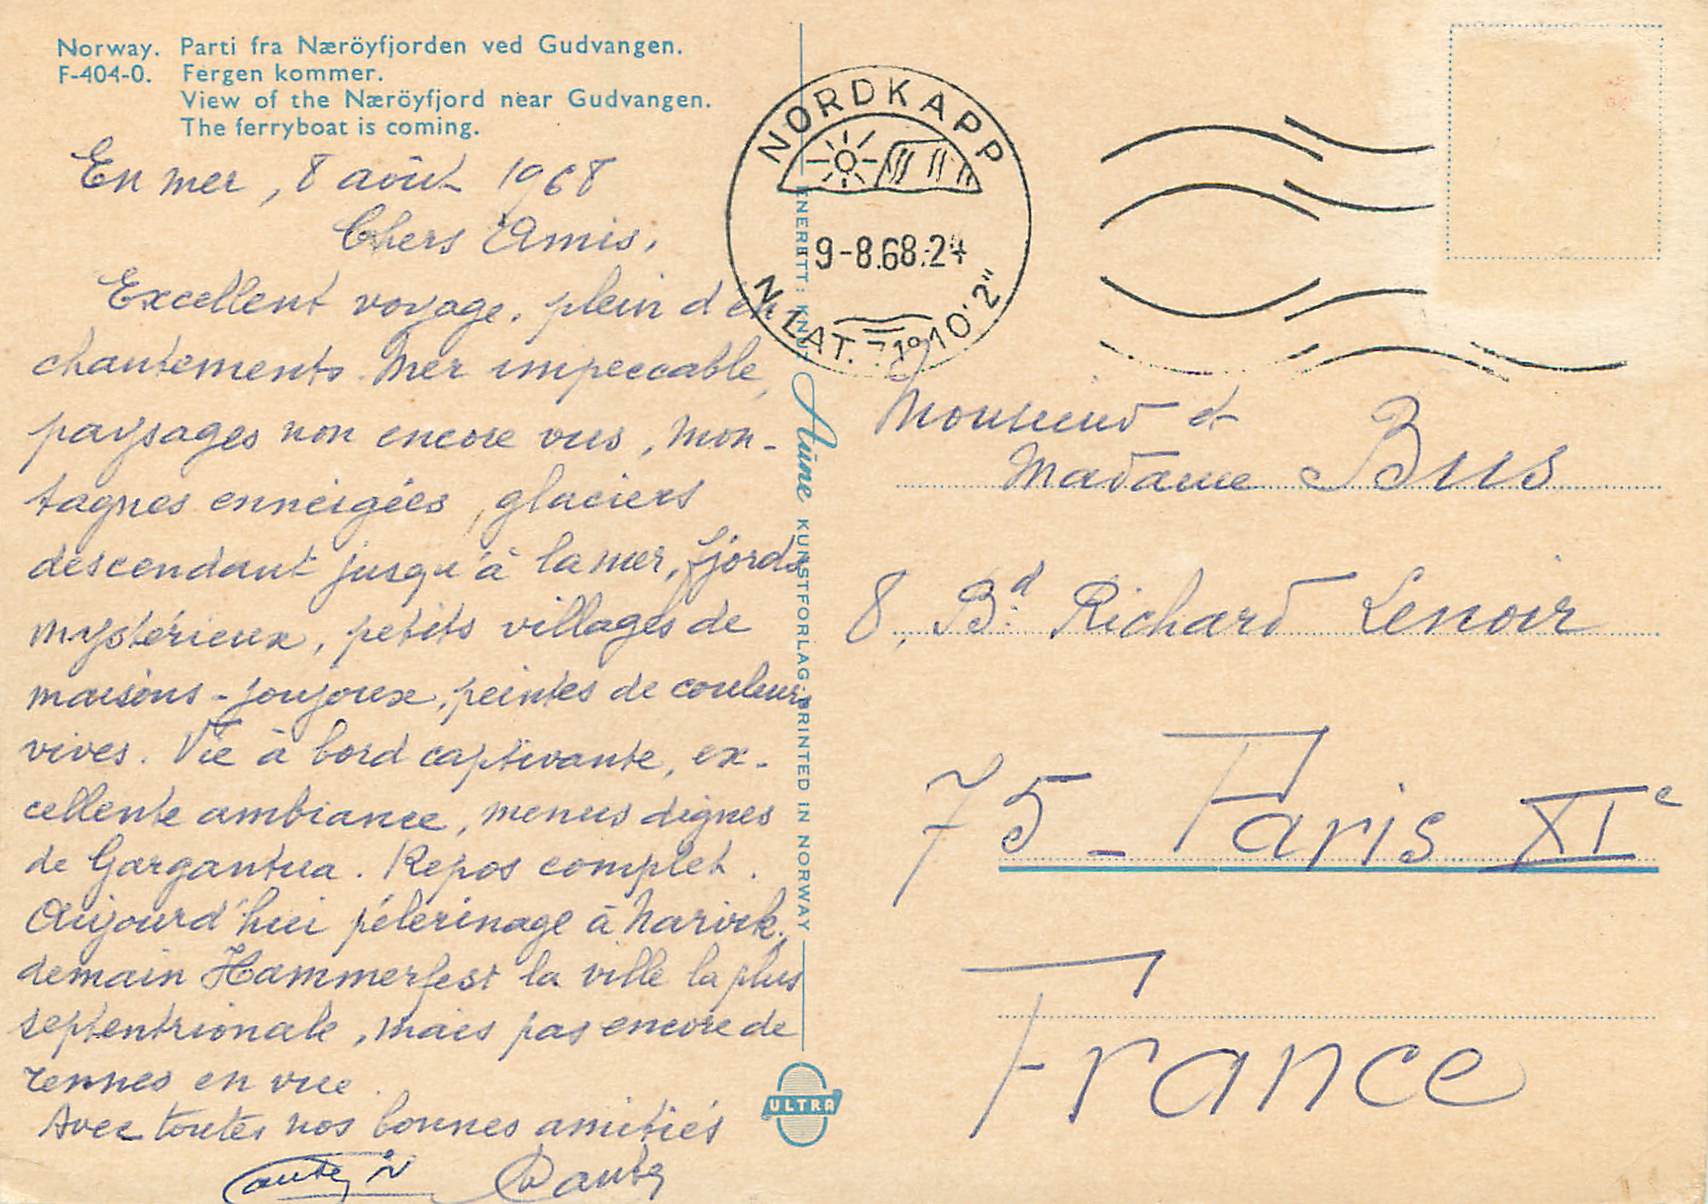 Norway. Parti fra Næröyfjorden ved Gudvangen.
F-404-0. Fergen kommer.
View of the Næröyfjord near Gudvangen.
The ferryboat is coming.
En mer, 8 août 1968
Chers Amis,
Excellent voyage, plein d'en
chantements. Mer impeccable,
paysages non encore vus, mon-
tagnes enneigées, glaciers
descendant jusqu'à la mer, fjords
mystérieux, petits villages de
maisons-joujoux, peintes de couleurs
vives. Vie à bord captivante, ex-
cellente ambiance, menus dignes
de Gargantua. Repos complet.
Aujourd'hui pélerinage à Narvik,
demain Hammerfest la ville la plus
septentrionale, mais pas encore de
rennes en vue.
Avec toutes nos bonnes amitiés
NORDKAPP
9-8.68.24
N. LAT. 71°10'2"
ENERETT: KNUT Aune KUNSTFORLAG. PRINTED IN NORWAY
ULTRA
Monsieur et
Madame Bus
8, Bd. Richard Lenoir
75 - Paris XIe
France